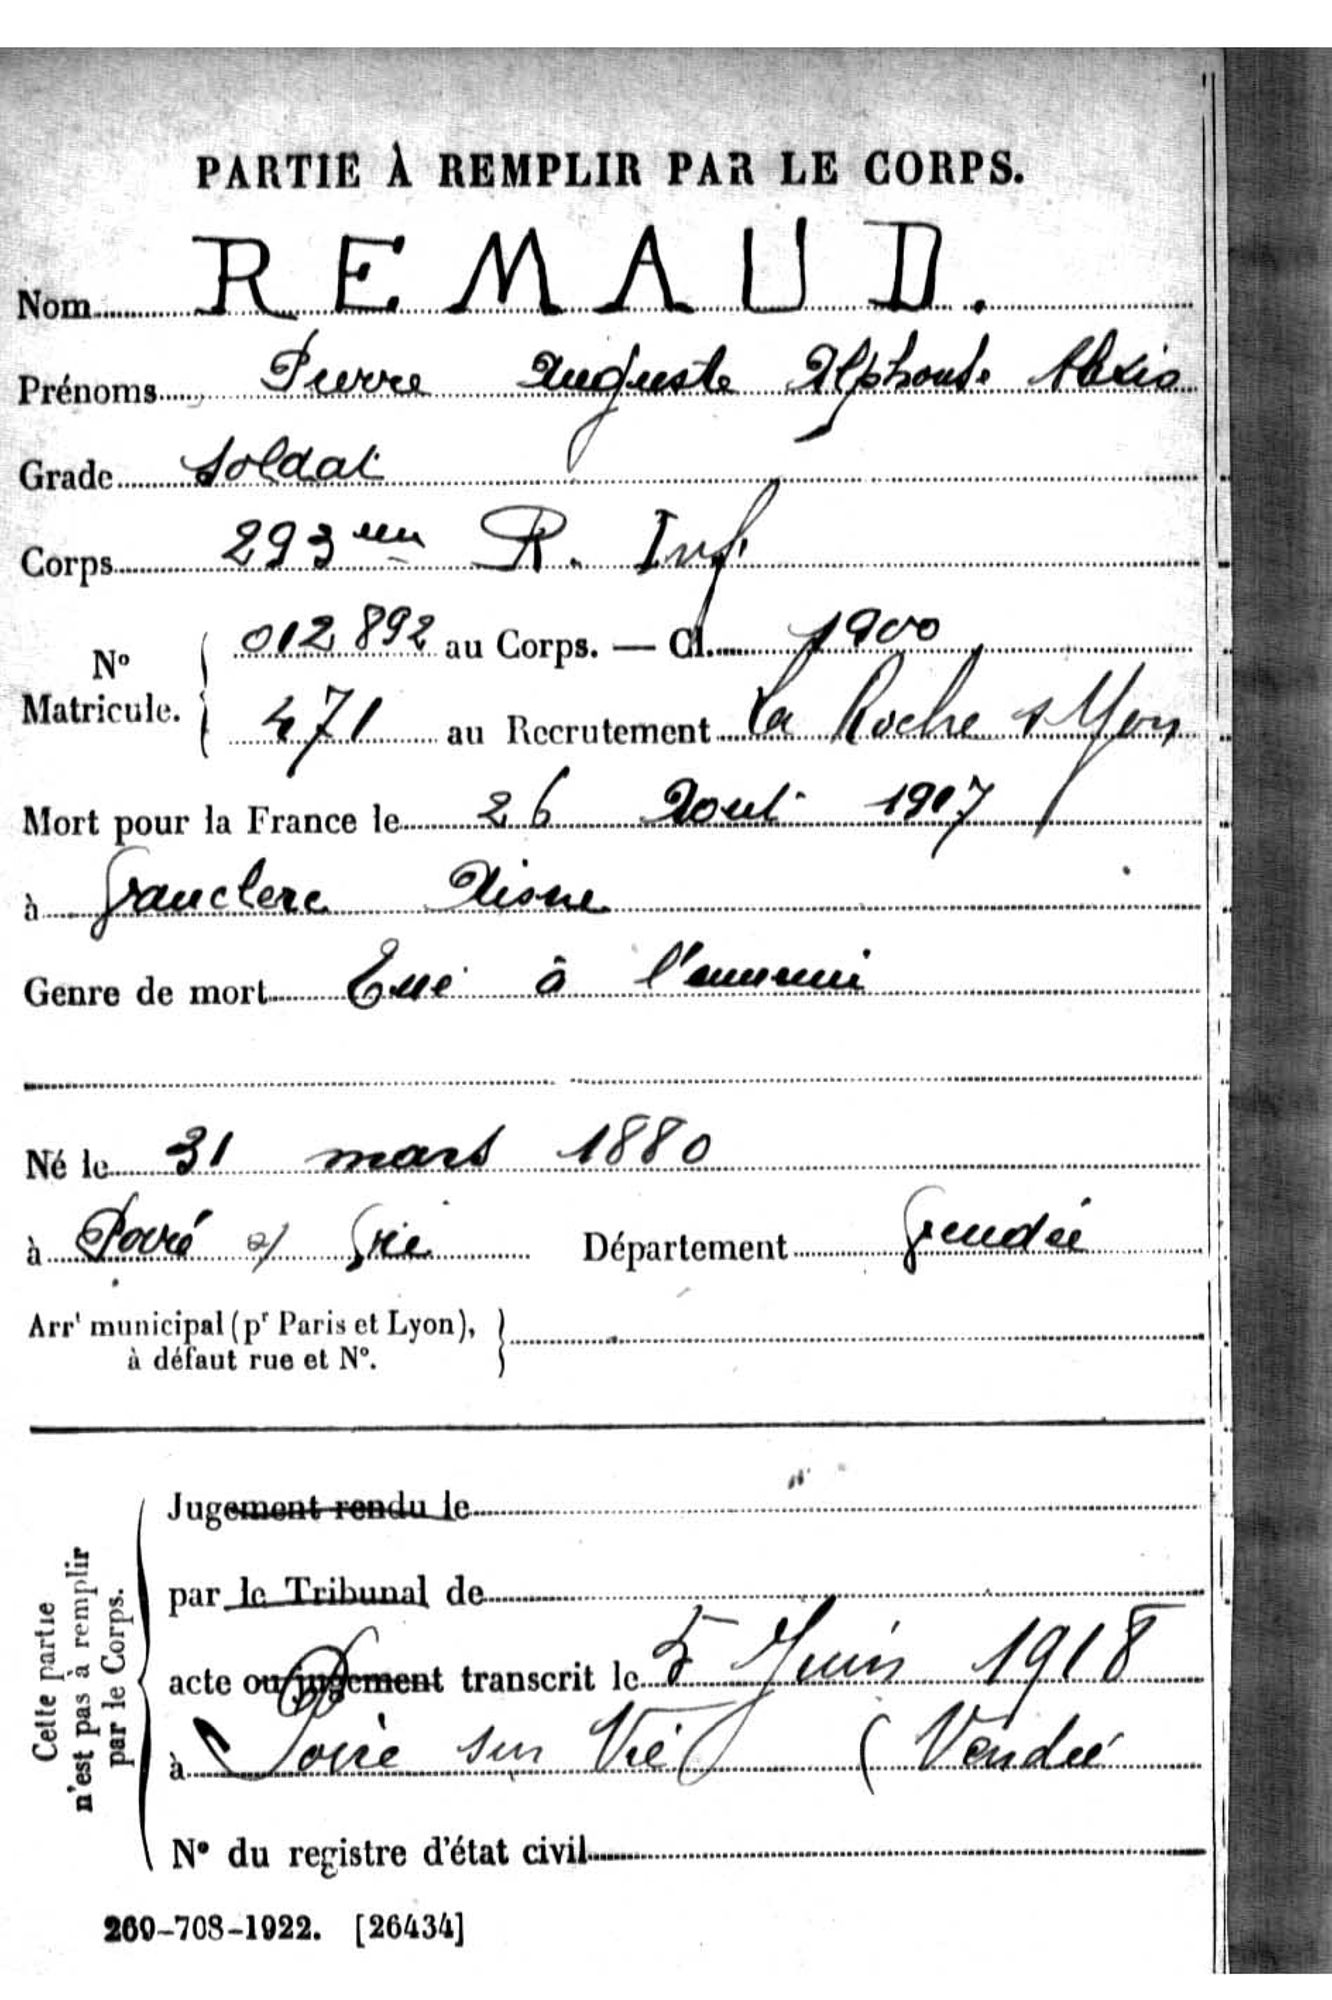 PARTIE À REMPLIR PAR LE CORPS.
Nom REMAUD.
Prénoms Pierre Auguste Alphonse Alexis
Grade Soldat
Corps 293 eme R. Inf
N° Matricule. 012892 au Corps. — Cl. 1900
471 au Recrutement La Roche s Yon
Mort pour la France le 26 Aout 1917
à Vauclerc Aisne
Genre de mort Tué à l'ennemi
Né le 31 mars 1880
à Poiré s/ Vie Département Vendée
Arrt municipal (pr Paris et Lyon),
à défaut rue et N°.
Cette partie
n'est pas à remplir
par le Corps.
Jugement rendu le
par le Tribunal de
acte ou jugement transcrit le 5 Juin 1918
à Poiré sur Vie (Vendée
N° du registre d'état civil
269-708-1922. [26434]